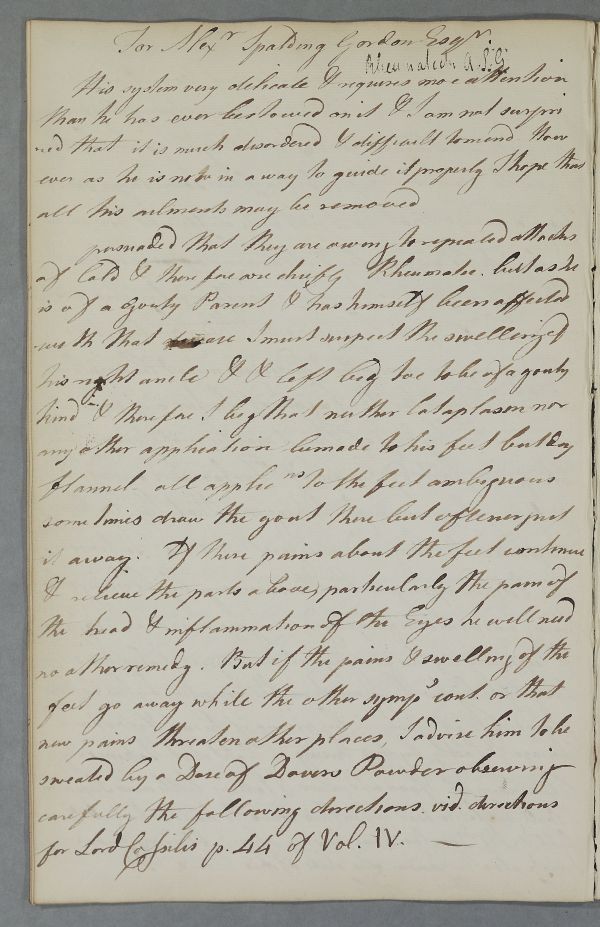 For Alexr Spalding Gordon Esqr.
Rheumatism A.S.G.
His system very delicate & requires more attention
than he has ever bestowed on it & I am not surpri
sed that it is much disordered & difficult to mend How
ever as he is now in a way to guide it properly I hope that
all his ailments may be removed
persuaded that they are owing to repeated attacks
of Cold & therefore are chiefly Rheumatic. but as he
is of a gouty Parent & has himself been affected
with that disease I must suspect the swelling of
his right ancle & left big toe to be of a gouty
kind & therefore I beg that neither Cataplasm nor
any other application be made to his feet but dry
flannel all applicns to the feet ambiguous
sometimes draw the gout there but oftener put
it away. If these pains about the feet continue
& relieve the parts above, particularly the pain of
the head & inflammation of the Eyes he will need
no other remedy. But if the pains & swelling of the
feet go away while the other symps cont. or that
new pains threaten other places, I advise him to be
sweated by a Dose of Dovers Powder observing
carefully the following directions. vid. directions
for Lord Cassilis p. 44 of Vol. IV.